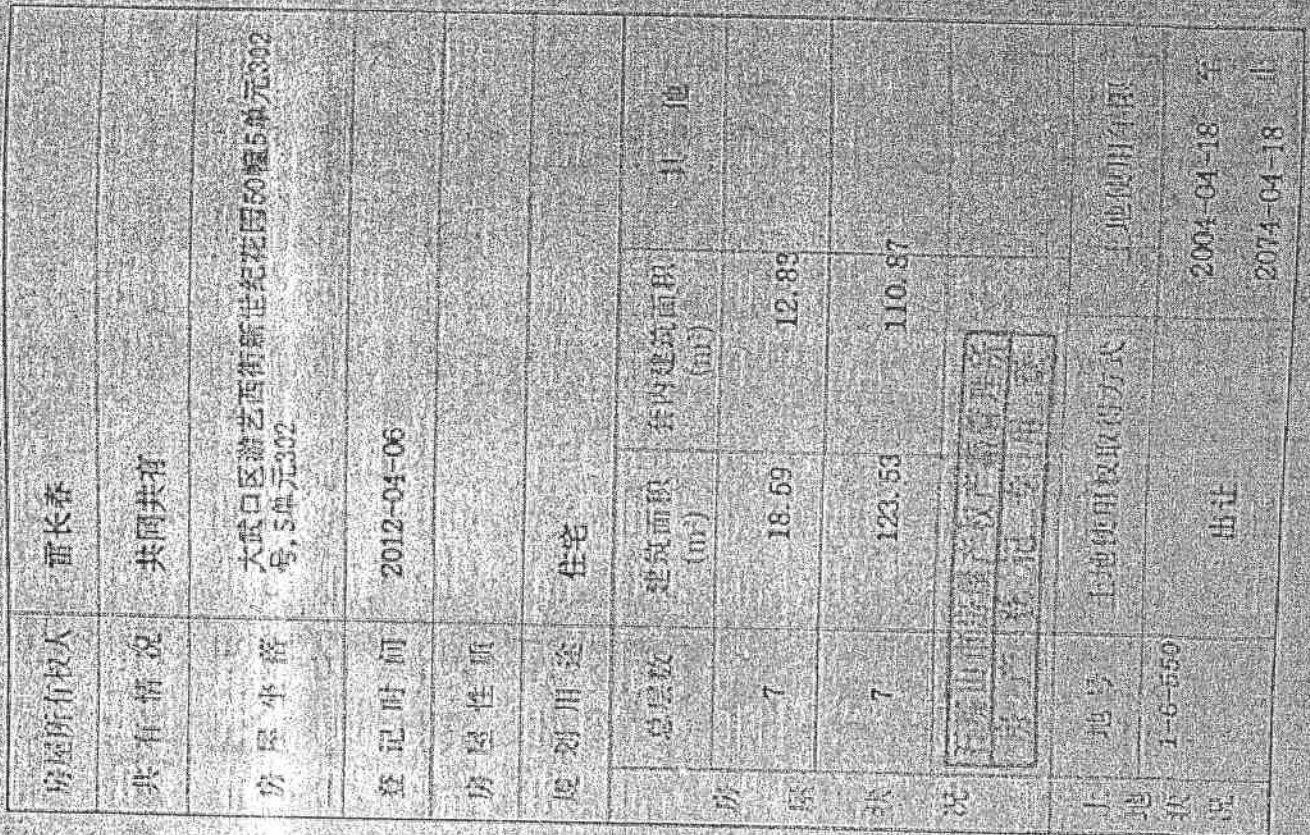 房屋所有权人 雷长春
共有情况 共同共有
房屋坐落 大武口区游艺西街新世纪花园50幢5单元302
号,5单元302
登记时间 2012-04-06
房屋性质
规划用途 住宅
房屋状况 总层数 建筑面积 (m²) 套内建筑面积 (m²) 其他
7 18.59 12.83
7 123.53 110.87
石嘴山市房屋产权产籍管理所
房产登记专用章
土地状况 地号 土地使用权取得方式 土地使用年限
1-6-550 出让 2004-04-18 年
2074-04-18 止